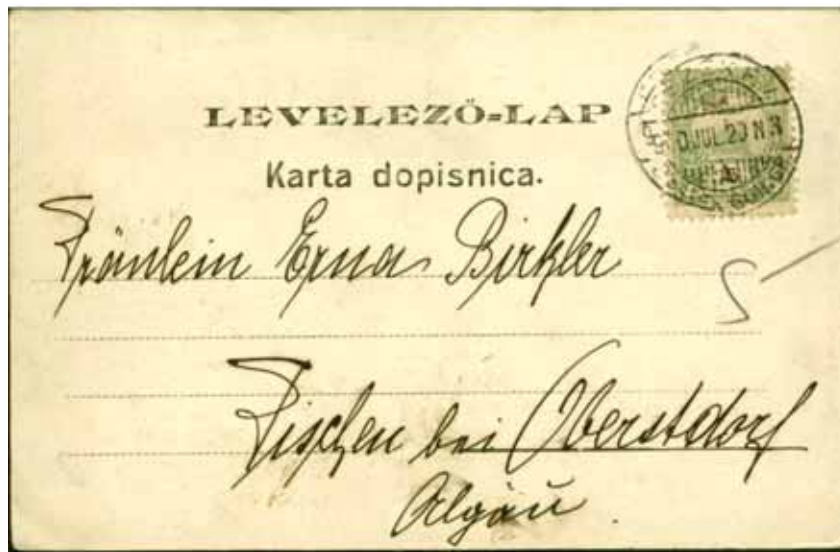 LEVELEZŐ=LAP
Karta dopisnica.
JUL. 20 N 3
Fräulein Erna Birkler
5
Fischen bei Oberstdorf
Algäu.